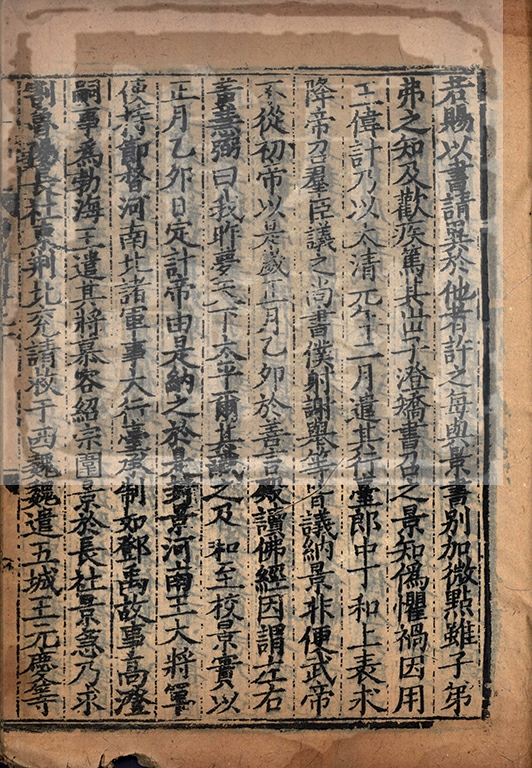 若賜以書請異於他者許之每與景書别加微點雖子弟
弗之知及歡疾篤其世子澄矯書召之景知僞懼禍因用
王偉計乃以太清元年二月遣其行臺郎中丁和上表求
降帝召羣臣議之尚書僕射謝舉等皆議納景非便武帝
不從初帝以是歲正月乙卯於善言殿讀佛經因謂左右
黄慧弼曰我昨夢天下太平爾其識之及和至校景實以
正月乙卯日定計帝由是納之於是封景河南王大將軍
使持節督河南北諸軍事大行臺承制如鄧禹故事高澄
嗣事為勃海王遣其將慕容紹宗圍景於長社景急乃求
割魯陽長社東荆北兖請救于西魏魏遣五城王元慶等